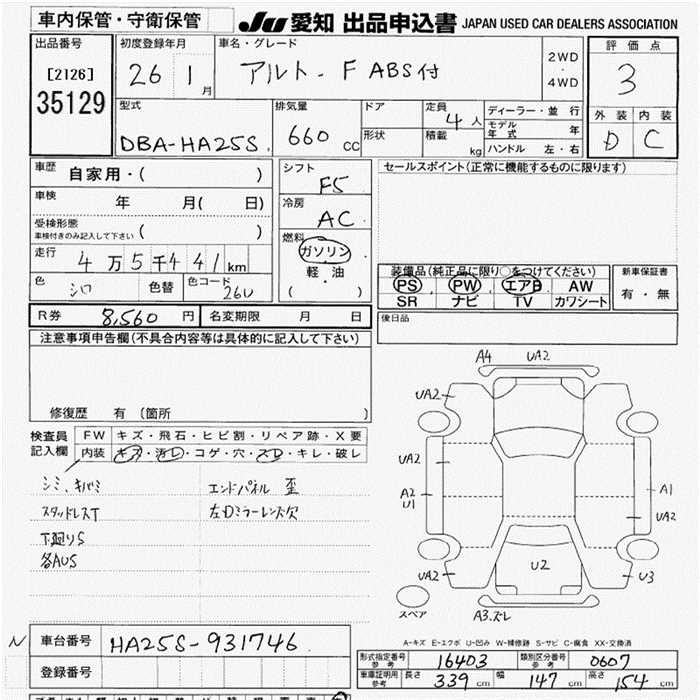 車内保管・守衛保管
JU 愛知 出品申込書 JAPAN USED CAR DEALERS ASSOCIATION
出品番号
[2126]
35129
初度登録年月
26 1 月
車名・グレード
アルト - F ABS付
2WD
・
4WD
評価点
3
外装 内装
D C
型式
DBA-HA25S.
排気量
660 cc
ドア
形状
定員
4 人
積載
kg
ディーラー・並行
モデル年式 年
ハンドル 左・右
車歴 自家用・( )
車検 年 月( 日)
受検形態
車検付きのみ記入して下さい ( )
走行 4万5千441km
色 シロ 色替 色コード 26U
シフト
F5
冷房
AC
燃料
ガソリン
・
軽・油
( )
セールスポイント(正常に機能するものに限ります)
装備品(純正品に限り○をつけてください)
PS PW エアB AW
SR ナビ TV カワシート
新車保証書
有・無
R券 8,560 円 名変期限 月 日
後日品
注意事項申告欄(不具合内容等は具体的に記入して下さい)
修復歴 有 (箇所 )
検査員記入欄
FW キズ・飛石・ヒビ割・リペア跡・X要
内装 キズ・汚レ・コゲ・穴・スレ・キレ・破レ
シミ、キバミ
スタッドレスT
下廻りS
各AUS
エンドパネル 歪
左Dミラーレンズ欠
A4 UA2
UA2
UA2
A2
U1
UA2
A1
UA2
U2
U3
A3.ズレ
スペア
A-キズ E-エクボ U-凹み W-補修跡 S-サビ C-腐食 XX-交換済
N 車台番号 HA25S-931746
登録番号
形式指定番号
参考
16403
類別区分番号
参考
0607
車庫証明用
参考
長さ 339 cm 幅 147 cm 高さ 154 cm